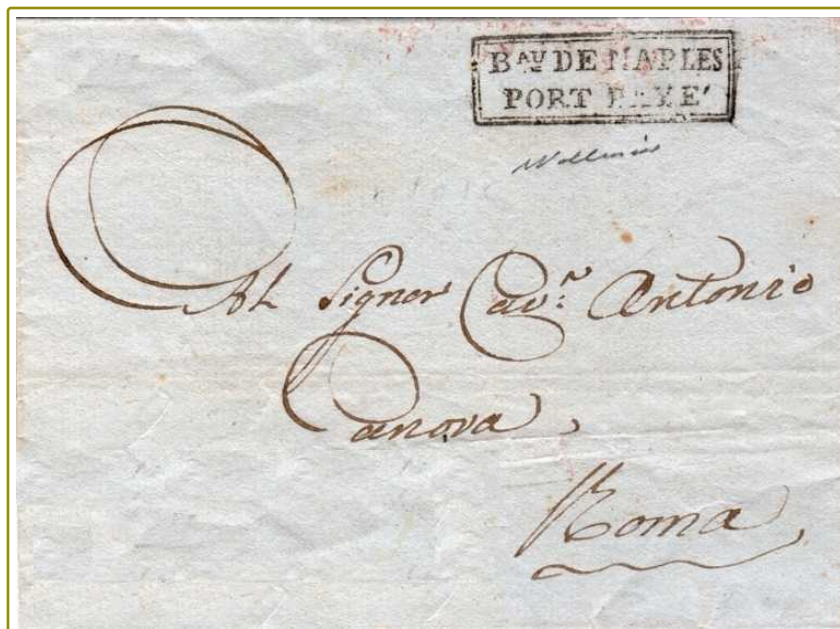 BAU DE NAPLES
PORT PAYE'
Al Signor Cavr. Antonio
Canova,
Roma